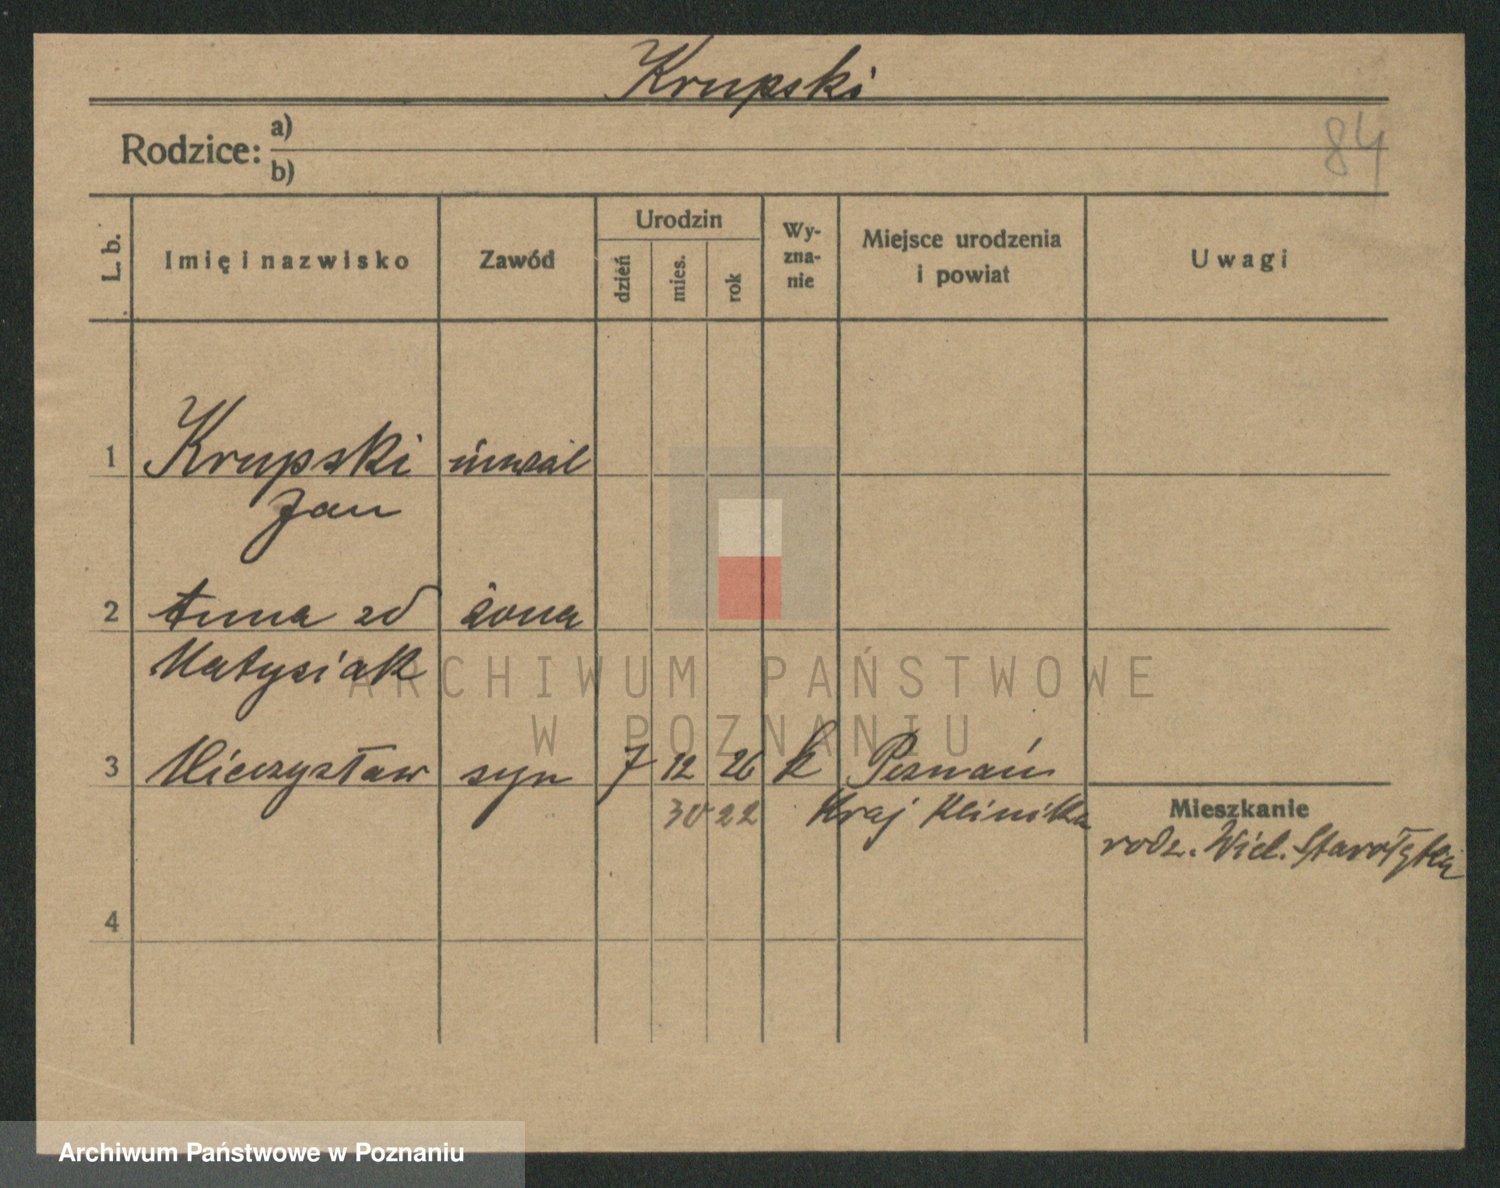 Krupski
84
Rodzice: a)
b)
L. b.
Imię i nazwisko
Zawód
Urodzin
dzień
mies.
rok
Wy-
zna-
nie
Miejsce urodzenia
i powiat
Uwagi
1 Krupski inwal
Jan
2 Anna zd żona
Matysiak
3 Mieczysław syn 7 12 26 k Poznań
3022 Kraj Klinika
Mieszkanie
rodz. Wiel. Starołęka
4
ARCHIWUM PAŃSTWOWE
W POZNANIU
Archiwum Państwowe w Poznaniu